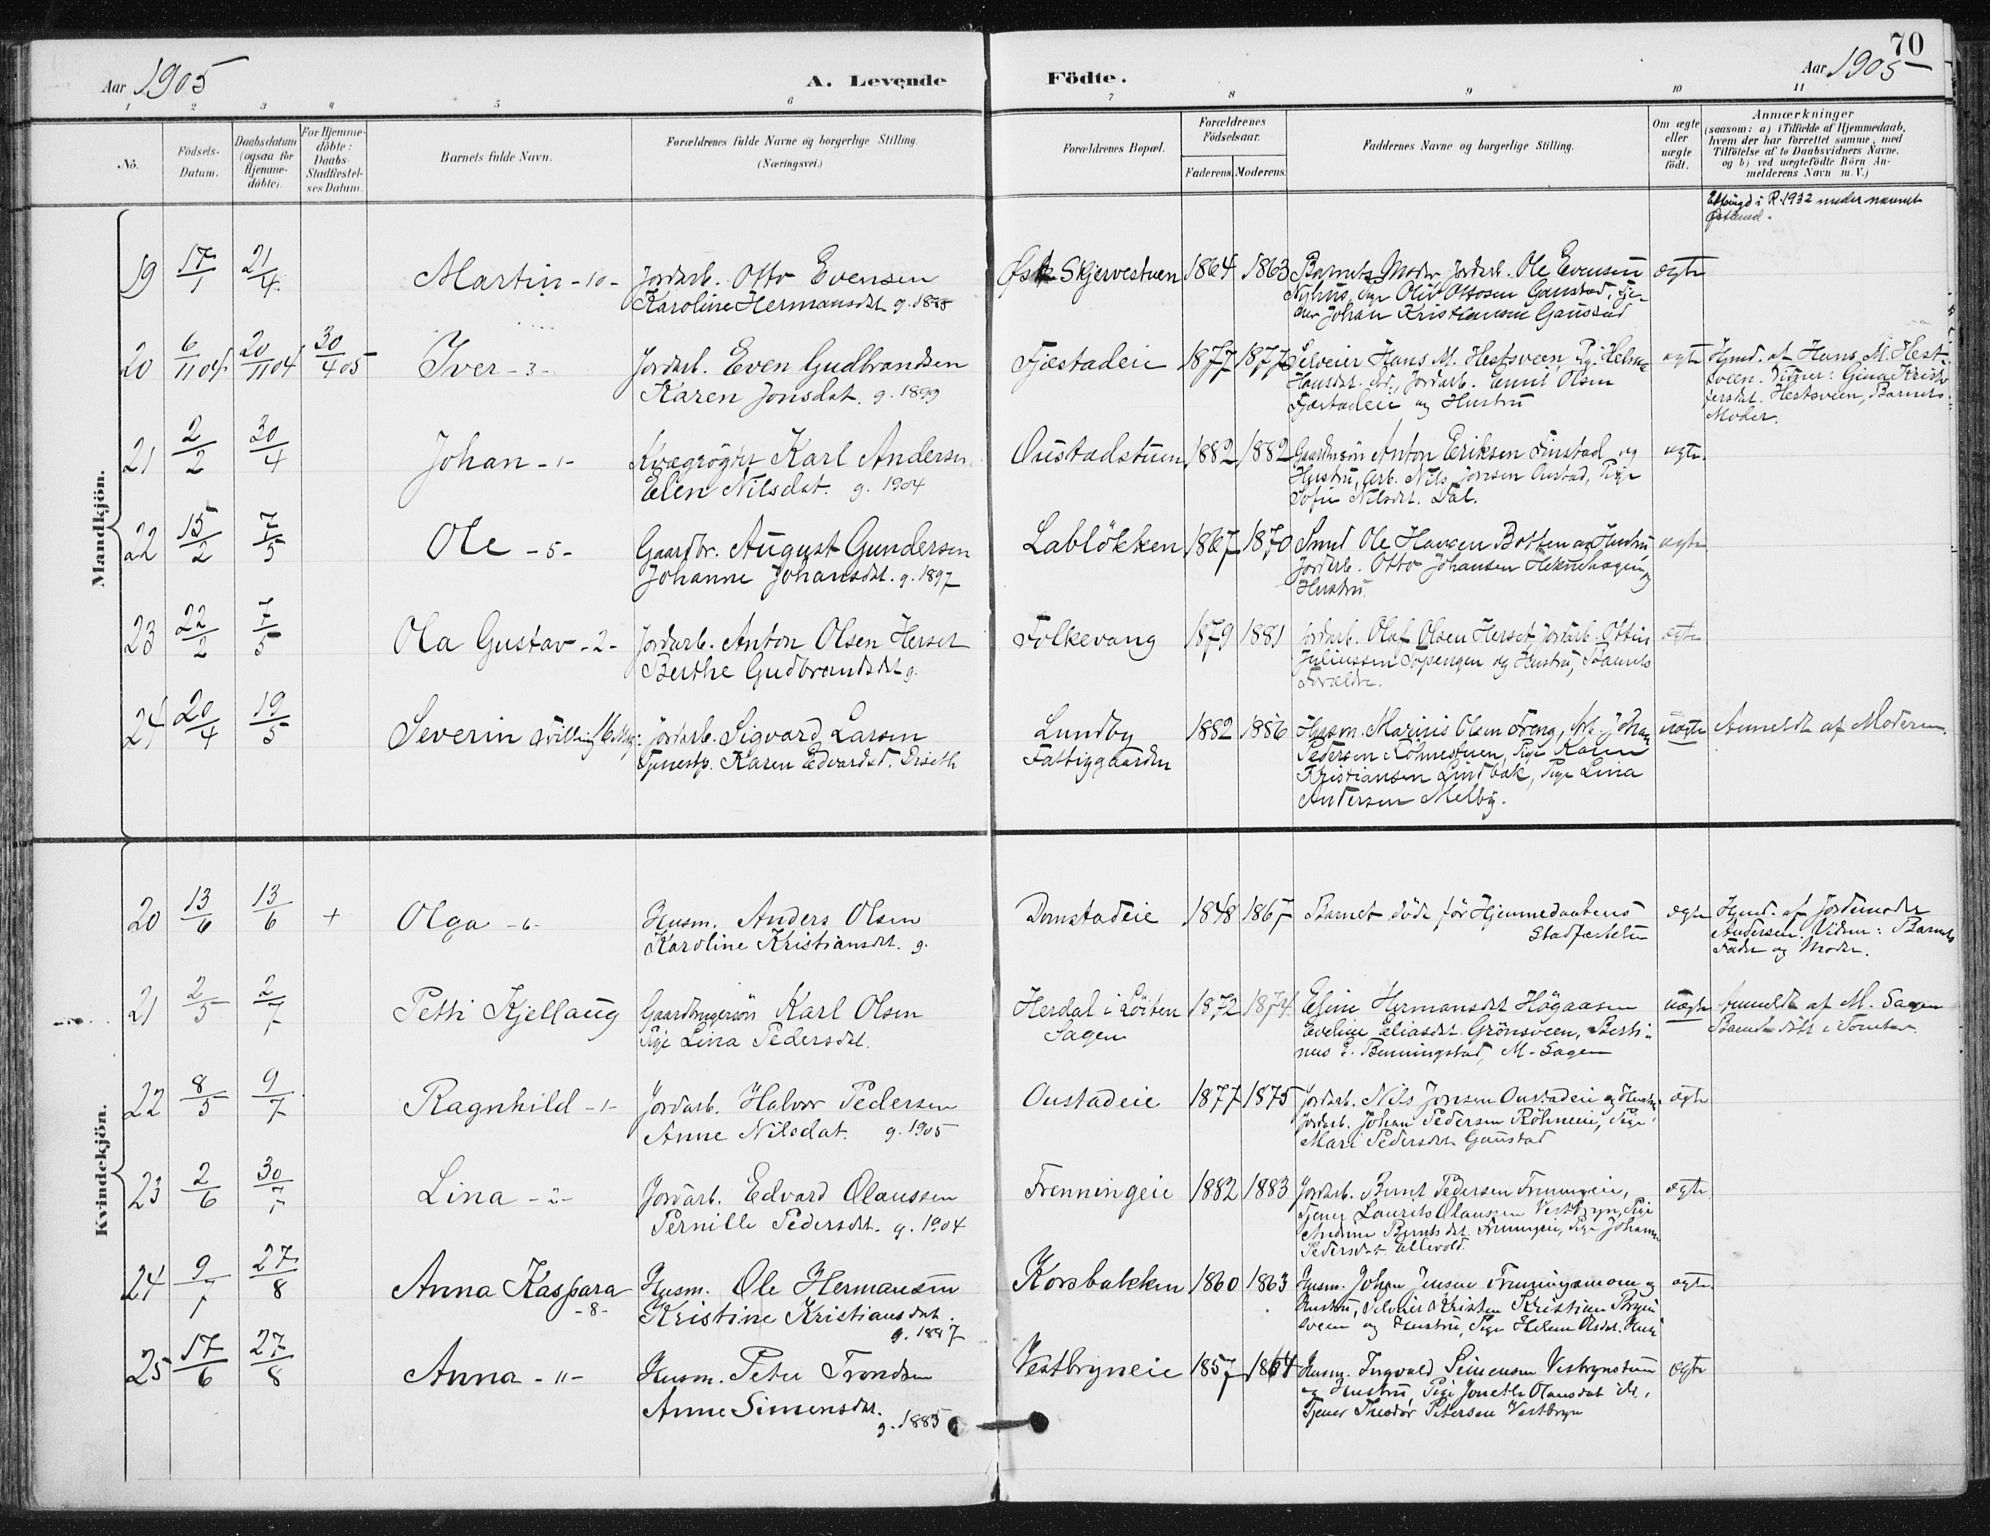 70
Aar 1905
A. Levende
Födte.
Aar 1905
1 2 3 4 5 6 7 8 9 10 11
No.
Födsels-
Datum.
Daabsdatum
(ogsaa för
Hjemme-
döbte).
For Hjemme-
döbte:
Daabs-
Stadfæstel-
ses Datum.
Barnets fulde Navn.
Forældrenes fulde Navne og borgerlige Stilling.
(Næringsvei.)
Forældrenes Bopæl.
Forældrenes
Födselsaar.
Faderens. Moderens.
Faddernes Navne og borgerlige Stilling.
Om ægte
eller
uægte
født.
Anmærkninger
(saasom: a) i Tilfælde af Hjemmedaab,
hvem der har forrettet samme, med
Tilföielse af to Daabsvidners Navne,
og b) ved uægtefödte Börn An-
melderens Navn m. V.)
i R. 1932 under navnet
Østlund.
Mandkjön.
19 17/1 21/4 Martin -10- Jordarb. Otto Evensen
Karoline Hermansdat. g. 1888
Skjervestuen 1864 1863 Barnets Moder, Jordarb. Ole Evensen
Nyhus, Pige Oliv Ottosen Gaustad,
Johan Kristiansen Gaustad
ægte
20 6/11 04 20/11 04 30/4 05 Iver -3- Jordarb. Even Gudbrandsen
Karen Jonsdat. g. 1899
Fjæstadeie 1877 1877 Selveier Hans M. Hestsveen, Pige Helma
Hansdat. ibd., Jordarb. Emil Olsen
Fjæstadeie og Hustru
ægte Hjmd. af Hans M. Hest-
sveen. Vidner: Gina Kristo-
fersdat. Hestsveen, Barnets
Moder.
21 2/2 30/4 Johan -1- Kvægrøgter Karl Andersen
Elen Nilsdat. g. 1904
Oustadstuen 1882 1882 Gaardmsön Anton Eriksen Finstad og
Hustru, Arb. Nils Jonsen Oustad, Pige
Sofie Nilsdat. Dal.
ægte.
22 15/2 7/5 Ole -5- Gaardbr. August Gundersen
Johanne Johansdat. g. 1897
Labløkken 1867 1870 Smed Ole Hansen Botten og Hustru
Jordarb. Otto Johansen Heknehagen og
Hustru.
ægte
23 22/2 7/5 Ola Gustav -2- Jordarb. Anton Olsen Herset
Berthe Gudbrandsdat g.
Folkevang 1879 1881 Jordarb. Olaf Olsen Herset, Jordarb. Ottin
Juliussen Sopengen og Hustru, Barnets
Forældre.
ægte
24 20/4 19/5 Severin Tvilling Jordarb. Sigvard Larsen
Tjenestp. Karen Edvardsd. Diseth
Lundby
Fattiggaarden
1882 1886 Husm. Marius Olsen Freng, Arb. Johan
Pedersen Röhnestuen, Pige Karen
Kristiansen Lindbak, Pige Lina
Andersen Melby.
uægte Anmeldt af Moderen.
Kvindekjön.
20 13/6 13/6 + Olga -6- Husm. Anders Olsen
Karoline Kristiansdat. g.
Domstadeie 1848 1867 Barnet døde før Hjemmedaabens
Stadfæstelse
ægte Hjmd. af Jordemoder
Andersen. Vidner: Barnets
Fader og Moder.
21 2/5 2/7 Petti Kjellaug Gaardbrugersön Karl Olsen
Pige Lina Pedersdat.
Herdal i Löiten
Sagen
1872 1874 Eline Hermansdat Högaasen
Eveline Eliasdat. Grönsveen, Berti-
nus Benningstad, M. Sagen
uægte Anmeldt af M. Sagen
Barnet
22 8/5 9/7 Ragnhild -1- Jordarb. Halvor Pedersen
Anne Nilsdat. g. 1905
Oustadeie 1877 1875 Jordarb. Nils Jonsen Oustadeie og Hustru
Jordarb. Johan Pedersen Röhneeie, Pige
Mari Pedersdat. Gaustad
ægte
23 2/6 30/7 Lina -2- Jordarb. Edvard Olaussen
Pernille Pedersdat. g. 1904
Frenningeie 1882 1883 Jordarb. Bernt Pedersen Frenningeie,
Tjener Laurits Olaussen Vestbryn, Pige
Andrine Berntsdat. Frenningeie, Pige Johanne
Pedersdat Ellevold.
ægte
24 9/1 27/8 Anna Kaspara
-8-
Husm. Ole Hermansen
Kristine Kristiansdat.
g. 1887
Korsbakken 1860 1863 Husm. Johan Jensen og
Hustru, Selveier Kristian Bryni-
sveen og Hustru, Pige Helene Olsdat.
ægte.
25 17/6 27/8 Anna -11- Husm. Peter Trondsen
Anne Simensdat.
g. 1885
Vestbryneie 1857 1864 Husm. Ingvald Simensen Vestbrynstuen
og Hustru, Pige Jonette Olausdat ibd.,
Tjener Theodor Petersen Vestbryn
ægte